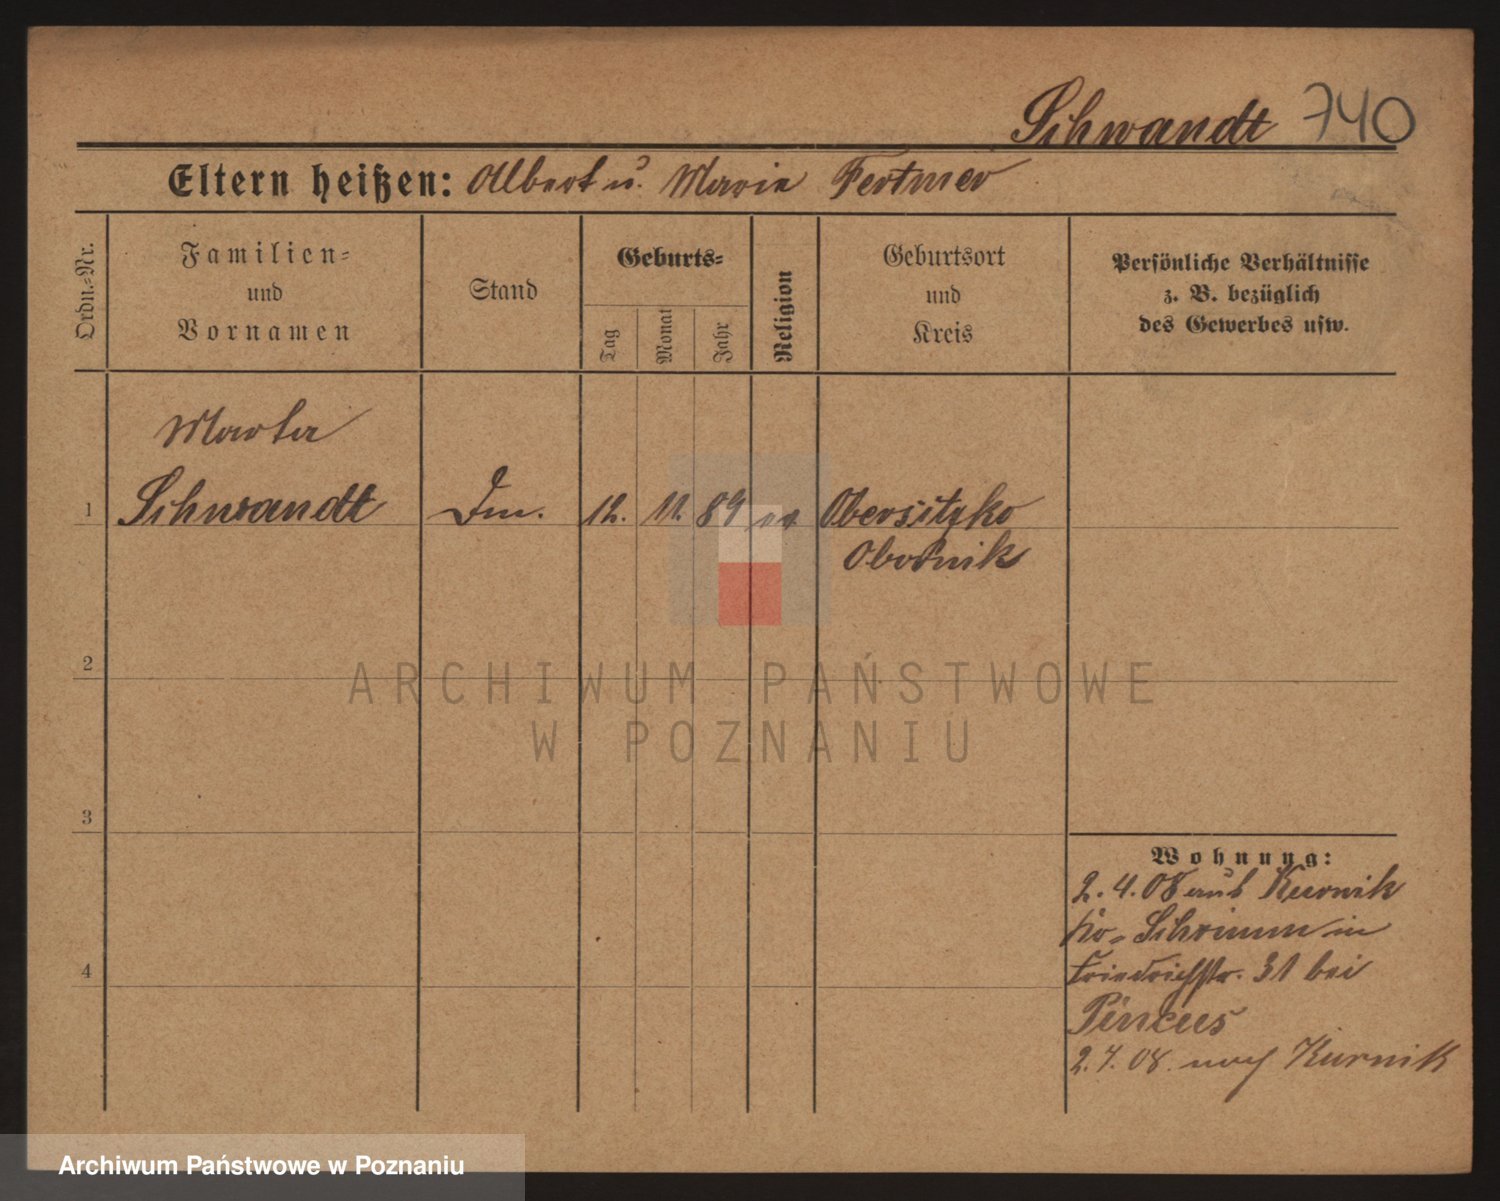 Schwandt 740
Eltern heißen: Albert u. Marie Fertner
Ordn.-Nr.
Familien-
und
Vornamen
Stand
Geburts-
Tag
Monat
Jahr
Religion
Geburtsort
und
Kreis
Persönliche Verhältnisse
z. B. bezüglich
des Gewerbes usw.
Marta
1 Schwandt 12. 11. 89 Obersitzko
Obornik
2
ARCHIWUM PAŃSTWOWE
W POZNANIU
3
Wohnung:
2. 4. 08 aus Kurnik
Schrimm in
4 Friedrichstr. 31 bei
Pincus
2. 7. 08. nach Kurnik
Archiwum Państwowe w Poznaniu